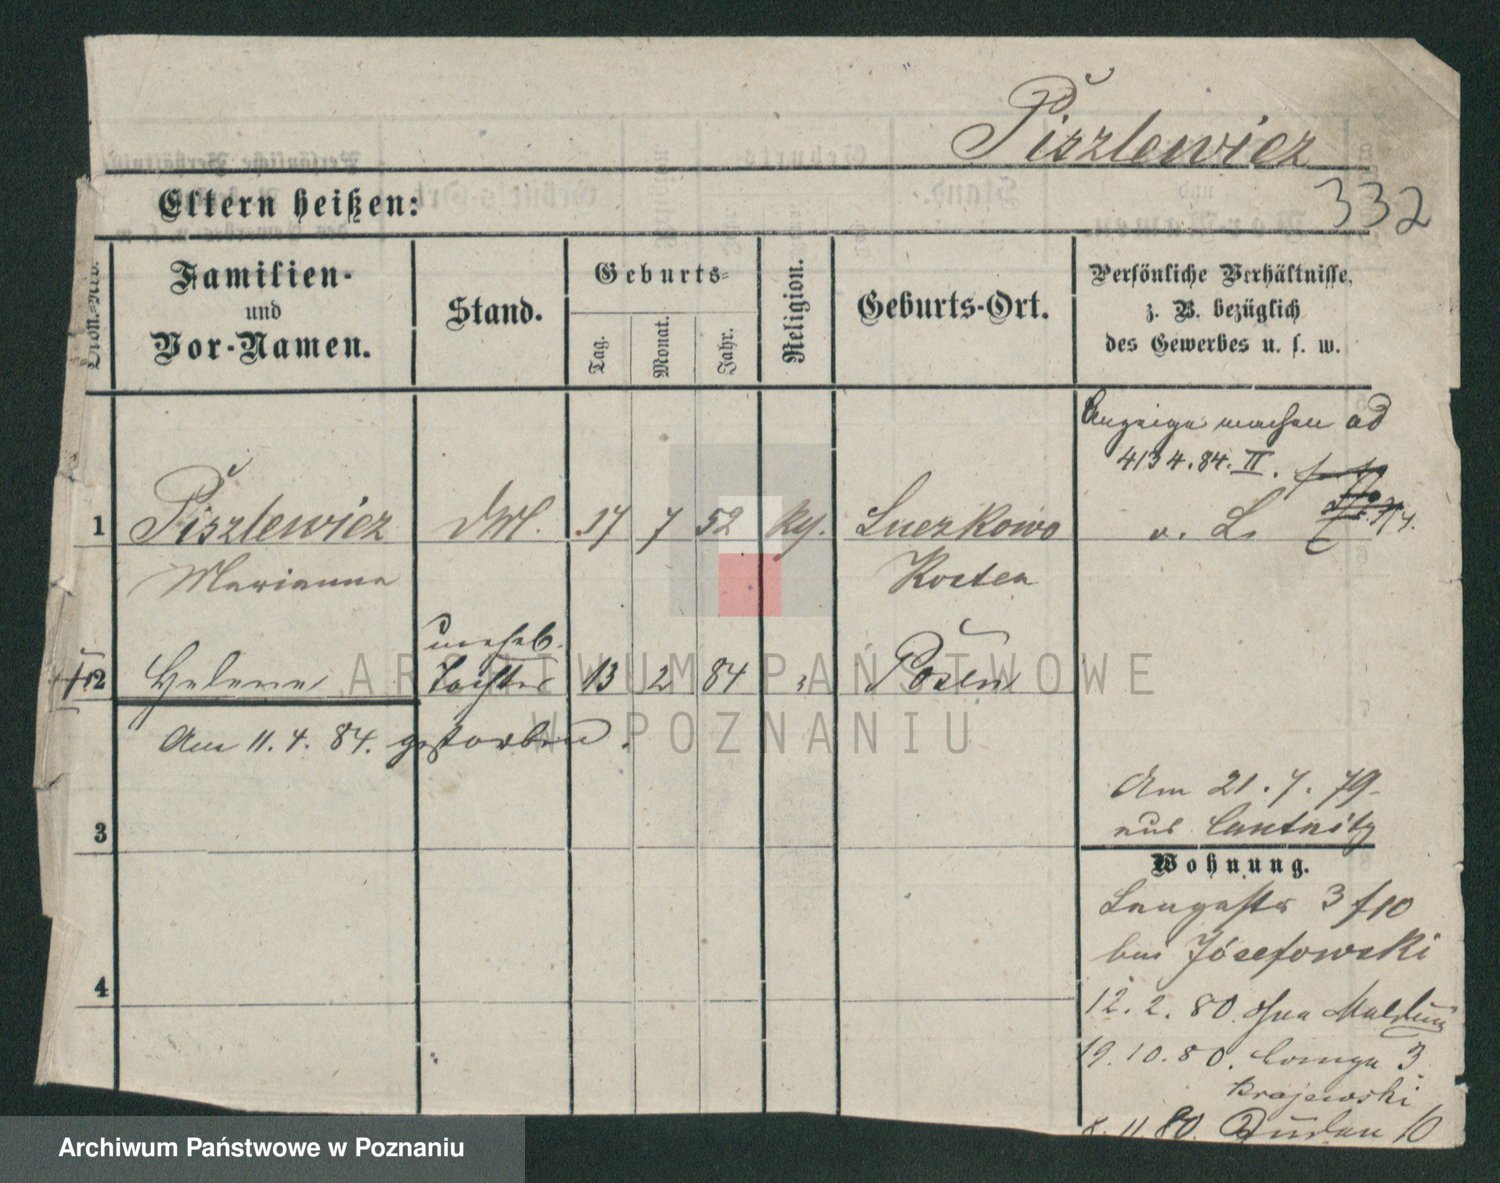 Piszlewicz
Eltern heißen:
332
Familien-
und
Vor-Namen.
Stand.
Geburts-
Tag.
Monat.
Jahr.
Religion.
Geburts-Ort.
Persönliche Verhältnisse,
z. B. bezüglich
des Gewerbes u. s. w.
Anzeige machen ad
4134.84. II.
1 Piszlewicz 17 7 52 Luczkowo v. L.
Marianna Kosten
unehel.
2 Helene Tochter 13 2 84 Posen
Am 11.4.84. gestorben.
Am 21.7.79.
aus
3
Wohnung.
Langestr 3
bei Józefowski
4
12.2.80.
19.10.80. 3
Krajewski
8.11.80. 10
ARCHIWUM PAŃSTWOWE
W POZNANIU
Archiwum Państwowe w Poznaniu